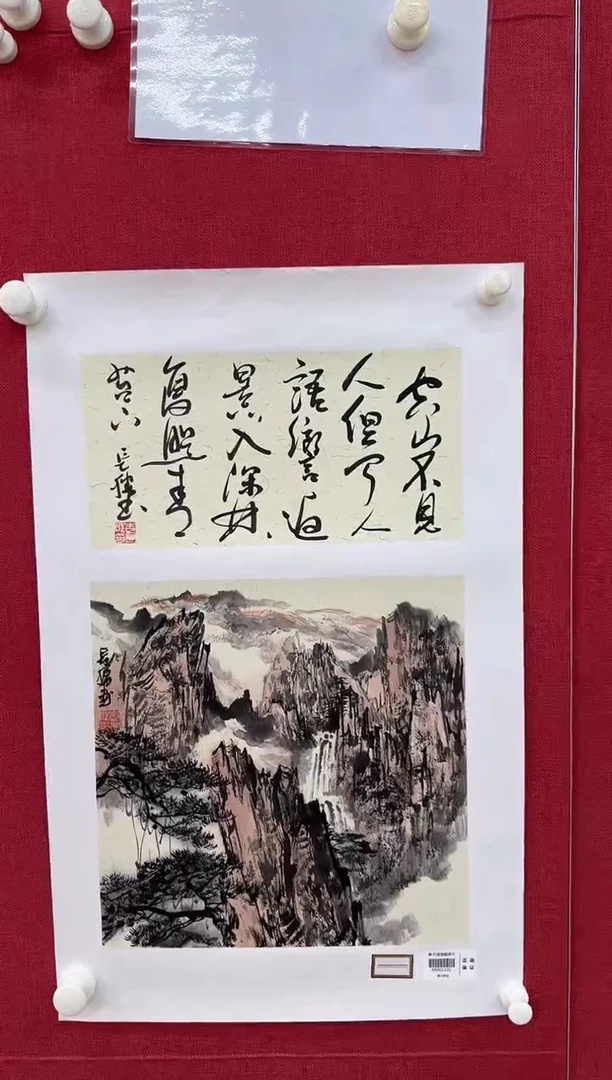 空山不見
人但聞人
語響返
景入深林
復照青
苔上